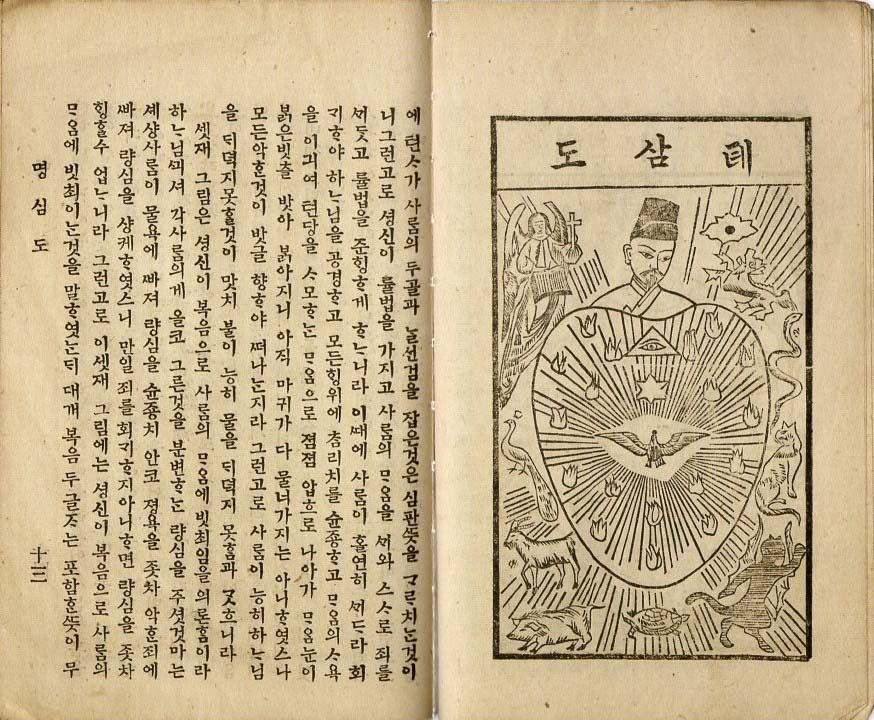 뎨삼도
에 텬ᄉᆞ가 사ᄅᆞᆷ의 두골과 ᄂᆞᆯ션검을 잡은것은 심판ᄯᅳᆺ을 ᄀᆞᄅᆞ치ᄂᆞᆫ것이
니그런고로 셩신이 률법을 가지고 사ᄅᆞᆷ의 ᄆᆞᄋᆞᆷ을 ᄭᆡ와 스ᄉᆞ로 죄를
ᄭᆡᄃᆞᆺ고 률법을 준ᄒᆡᆼᄒᆞ게 ᄒᆞᄂᆞ니라 이ᄯᅢ에 사ᄅᆞᆷ이 홀연히 ᄭᆡᄃᆞ라 회
ᄀᆡᄒᆞ야 하ᄂᆞ님을 공경ᄒᆞ고 모든ᄒᆡᆼ위에 ᄎᆞᆷ리치를 슌죵ᄒᆞ고 ᄆᆞᄋᆞᆷ의ᄉᆞ욕
을 이긔여 텬당을 ᄉᆞ모ᄒᆞᄂᆞᆫ ᄆᆞᄋᆞᆷ으로 졈졈 압흐로 나아가 ᄆᆞᄋᆞᆷ눈이
붉은빗츨 밧아 붉아지니 아직 마귀가 다 물너가지는 아니ᄒᆞ엿스나
모든악ᄒᆞᆫ것이 밧글 향ᄒᆞ야 ᄯᅥ나ᄂᆞᆫ지라 그런고로 사ᄅᆞᆷ이 능히하ᄂᆞ님
을 ᄃᆡ뎍지못ᄒᆞᆯ것이 맛치 불이 능히 물을 ᄃᆡ뎍지 못ᄒᆞᆷ과 ᄀᆞᆺ흐니라
셋재 그림은 셩신이 복음으로 사ᄅᆞᆷ의 ᄆᆞᄋᆞᆷ에 빗최임을의론ᄒᆞᆷ이라
하ᄂᆞ님ᄭᅴ셔 각사ᄅᆞᆷ의게 올코 그른것을 분변ᄒᆞᄂᆞᆫ 량심을 주셧것마는
셰샹사ᄅᆞᆷ이 물욕에 ᄲᅡ져 량심을 슌죵치 안코 졍욕을 좃차 악ᄒᆞᆫ죄에
ᄲᅡ져 량심을 샹케ᄒᆞ엿스니 만일 죄를회ᄀᆡᄒᆞ지아니ᄒᆞ면 량심을 좃차
ᄒᆡᆼᄒᆞᆯ수 업ᄂᆞ니라 그런고로 이셋재 그림에는 셩신이 복음으로 사ᄅᆞᆷ의
ᄆᆞᄋᆞᆷ에 빗최이ᄂᆞᆫ것을 말ᄒᆞ엿ᄂᆞᆫᄃᆡ 대개 복음 두글ᄌᆞ는 포함ᄒᆞᆫᄯᅳᆺ이 무
명심도 十三